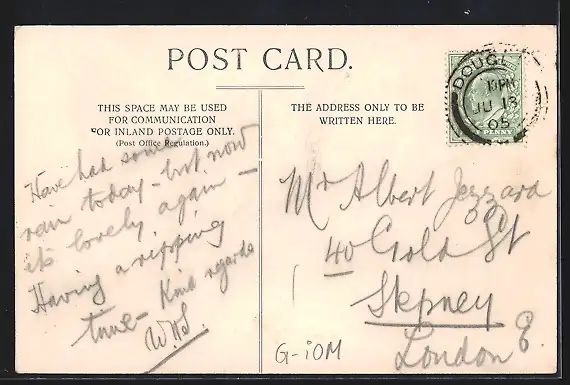 POST CARD.
THIS SPACE MAY BE USED
FOR COMMUNICATION
FOR INLAND POSTAGE ONLY.
(Post Office Regulation.)
THE ADDRESS ONLY TO BE
WRITTEN HERE.
DOUGL
JU 13
05
PENNY
Have had some
rain today - but now
its lovely again -
Having a ripping
time - Kind regards
Mr Albert Jezzard
40 Gold St
Stepney
London E.
G-iOM